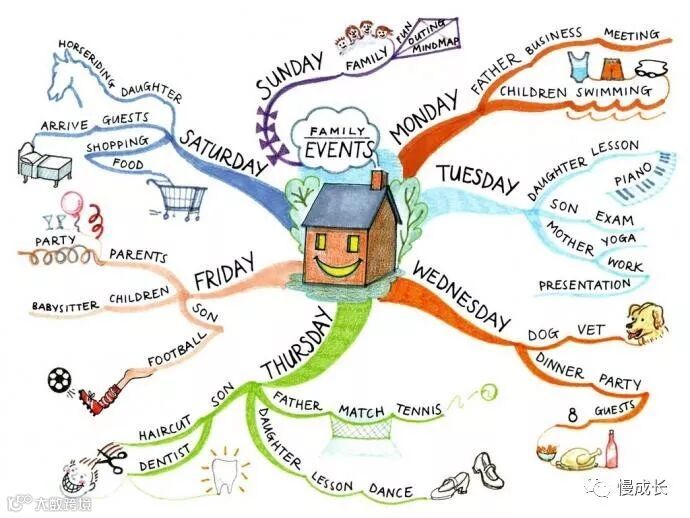 FAMILY
EVENTS
SUNDAY
FAMILY
FUN
OUTING
MINDMAP
MONDAY
FATHER BUSINESS MEETING
CHILDREN SWIMMING
TUESDAY
DAUGHTER LESSON
PIANO
SON EXAM
MOTHER YOGA
WORK
PRESENTATION
WEDNESDAY
DOG VET
DINNER PARTY
8 GUESTS
THURSDAY
FATHER MATCH TENNIS
DAUGHTER LESSON DANCE
SON
HAIRCUT
DENTIST
FRIDAY
PARENTS
PARTY
CHILDREN
BABYSITTER
SON
FOOTBALL
SATURDAY
DAUGHTER
HORSERIDING
GUESTS
ARRIVE
SHOPPING
FOOD
大数跨境
慢成长